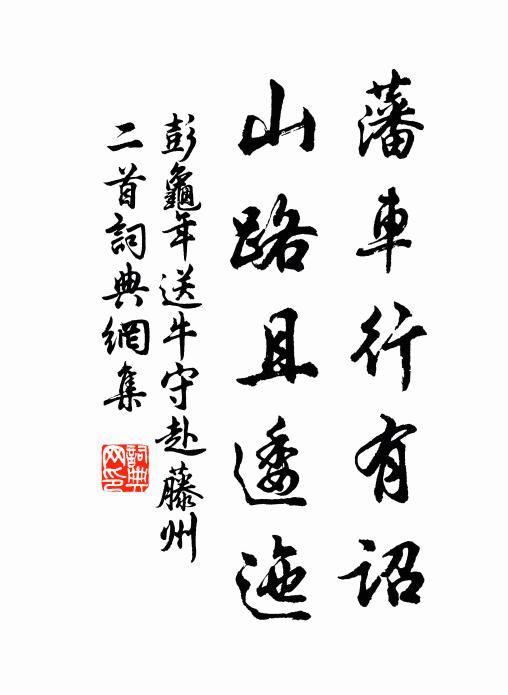 藩車行有詔
山路且逶迤
彭龜年送牛守赴藤州
二首詞典網集
詞典
网印